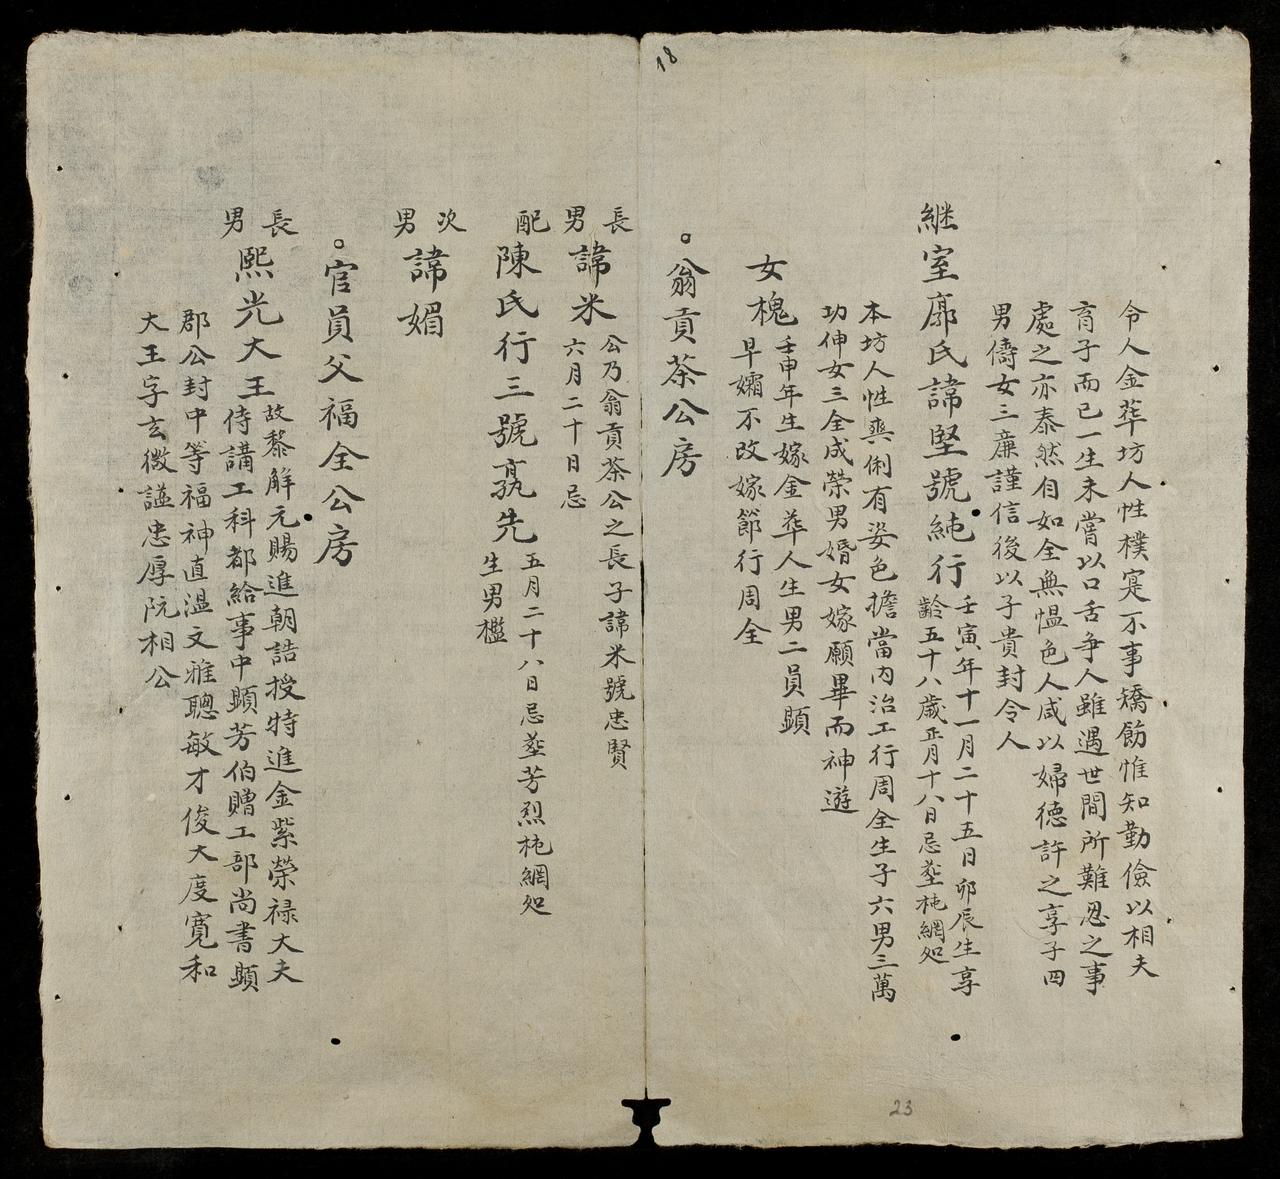 18
令人金葬坊人性樸寔不事矯飭惟知勤儉以相夫
育子而已一生未嘗以口舌争人雖遇世間所難忍之事
處之亦泰然自如全無愠色人咸以婦徳許之享子四
男儔女三亷謹信後以子貴封令人
継室廓氏諱堅號純行
壬寅年十一月二十五日卯辰生享
齡五十八歲正月十八日忌塟杶網処
本坊人性爽俐有姿色擔當内治工行周全生子六男三萬
功伸女三全成榮男婚女嫁願畢而神遊
女槐
壬申年生嫁金葬人生男二員顕
早孀不改嫁節行周全
翁貢茶公房
長男諱米
公乃翁貢茶公之長子諱米號忠賢
六月二十日忌
配陳氏行三號先
五月二十八日忌塟芳烈杶網処
生男檻
次男諱媚
官員父福全公房
長男熙光大王
故黎解元賜進朝誥授特進金紫榮禄大夫
侍講工科都給事中顕芳伯贈工部尚書顕
郡公封中等福神直溫文雅聰敏才俊大度寬和
大王字玄微諡忠厚阮相公
23